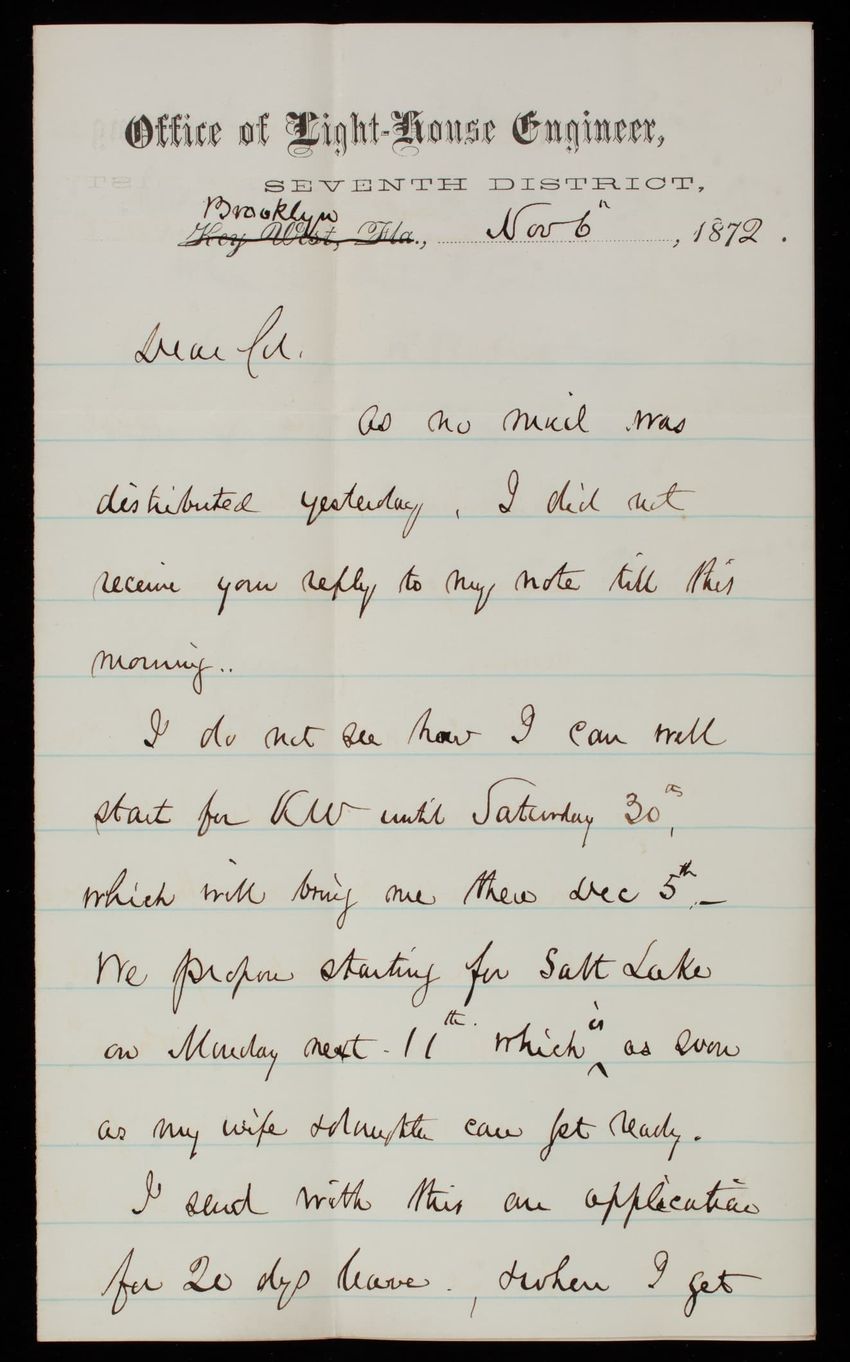 Office of Light-House Engineer,
SEVENTH DISTRICT,
Brooklyn
Key West, Fla., Nov 6th, 1872.
Dear Col.
As no mail was
distributed yesterday, I did not
receive your reply to my note till this
morning..
I do not see how I can well
start for KW until Saturday 30th,
which will bring me there Dec 5th. —
We propose starting for Salt Lake
on Monday next - 11th. which is as soon
as my wife & daughter can get ready.
I send with this an application
for 20 dys leave. , & when I get